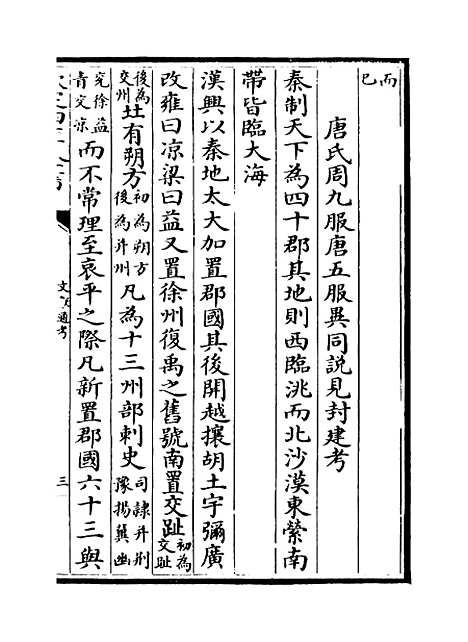 而
已
唐氏周九服唐五服異同說見封建考
秦制天下為四十郡其地則西臨洮而北沙漠東縈南
帶皆臨大海
漢興以秦地太大加置郡國其後開越攘胡土宇彌廣
改雍曰凉梁曰益又置徐州復禹之舊號南置交趾初為交趾
後為交州北有朔方初為朔方後為并州凡為十三州部刺史司隷并荆豫揚冀幽
兖徐益青交凉而不常理至哀平之際凡新置郡國六十三與
文獻通考
三